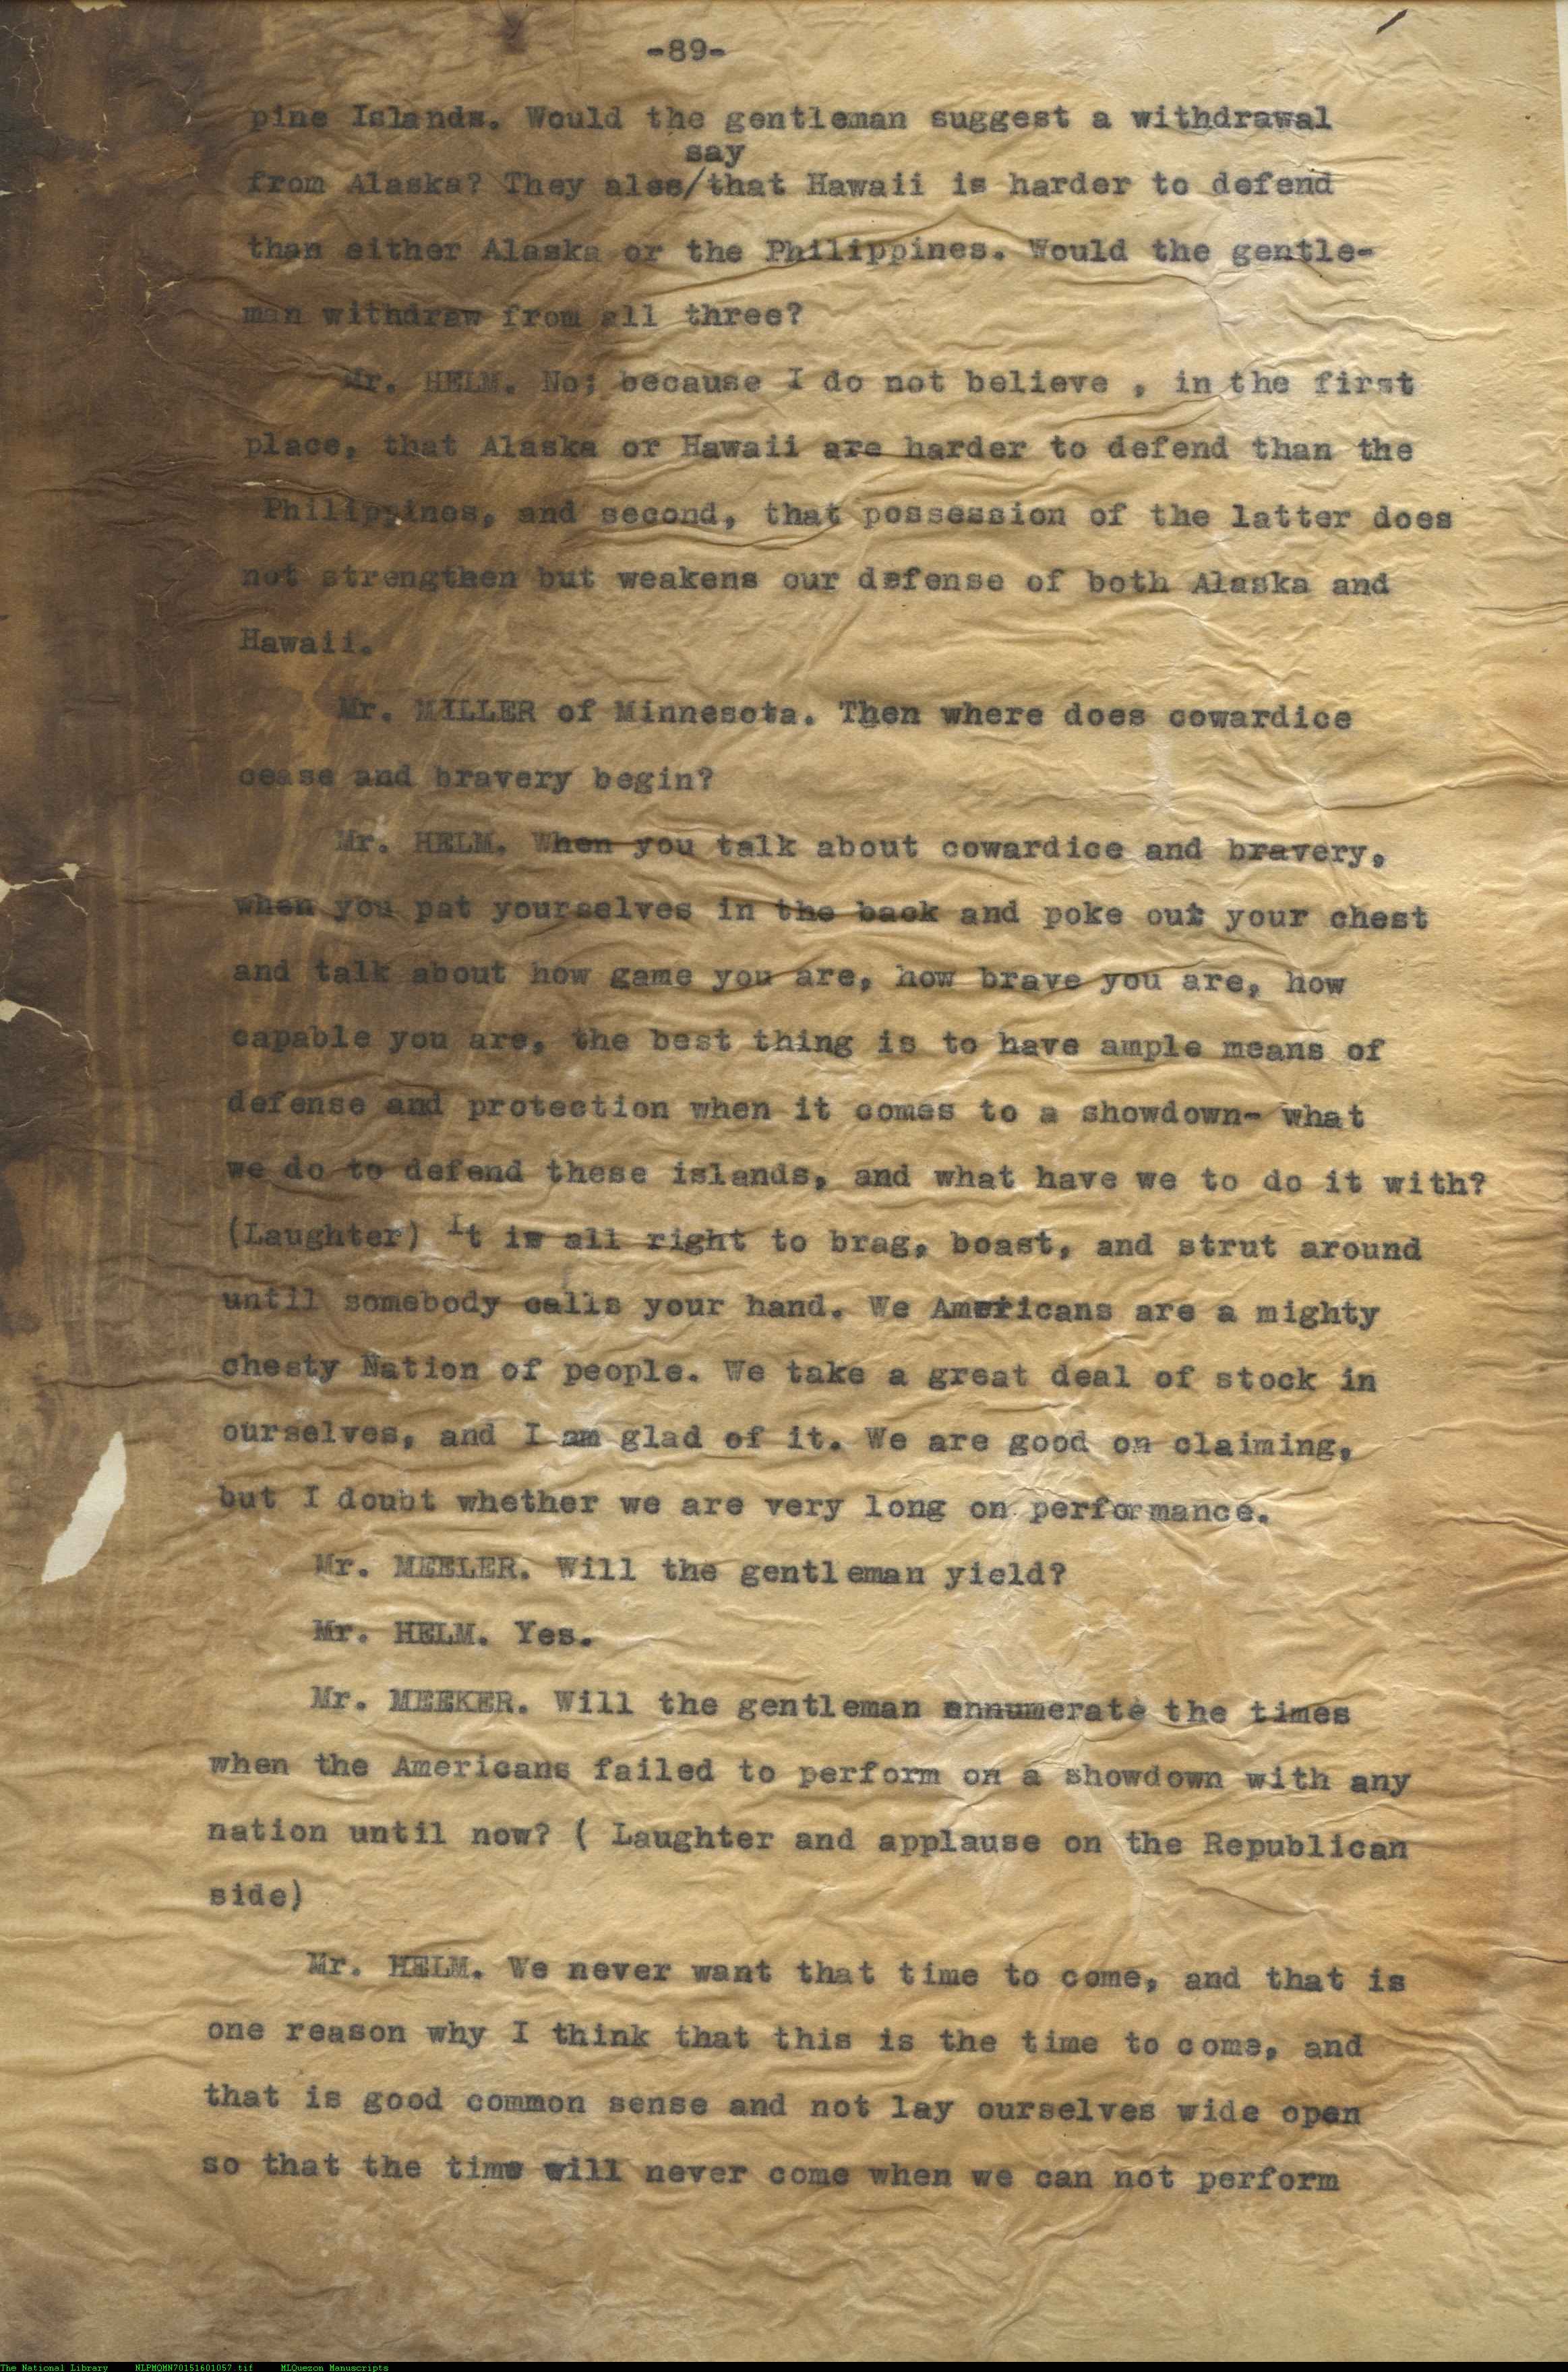 -89-
pine Islands. Would the gentleman suggest a withdrawal
say
from Alaska? They also/that Hawaii is harder to defend
than either Alaska or the Philippines. Would the gentle-
man withdraw from all three?
Mr. HELM. No; because I do not believe , in the first
place, that Alaska or Hawaii are harder to defend than the
Philippines, and second, that possession of the latter does
not strengthen but weakens our defense of both Alaska and
Hawaii.
Mr. MILLER of Minnesota. Then where does cowardice
cease and bravery begin?
Mr. HELM. When you talk about cowardice and bravery,
when you pat yourselves in the back and poke out your chest
and talk about how game you are, how brave you are, how
capable you are, the best thing is to have ample means of
defense and protection when it comes to a showdown- what
we do to defend these islands, and what have we to do it with?
(Laughter) It is all right to brag, boast, and strut around
until somebody calls your hand. We Americans are a mighty
chesty Nation of people. We take a great deal of stock in
ourselves, and I am glad of it. We are good on claiming,
but I doubt whether we are very long on performance.
Mr. MEELER. Will the gentleman yield?
Mr. HELM. Yes.
Mr. MEEKER. Will the gentleman ennumerate the times
when the Americans failed to perform on a showdown with any
nation until now? ( Laughter and applause on the Republican
side)
Mr. HELM. We never want that time to come, and that is
one reason why I think that this is the time to come, and
that is good common sense and not lay ourselves wide open
so that the time will never come when we can not perform
The National Library NLPMQMN70151601057.tif MLQuezon Manuscripts